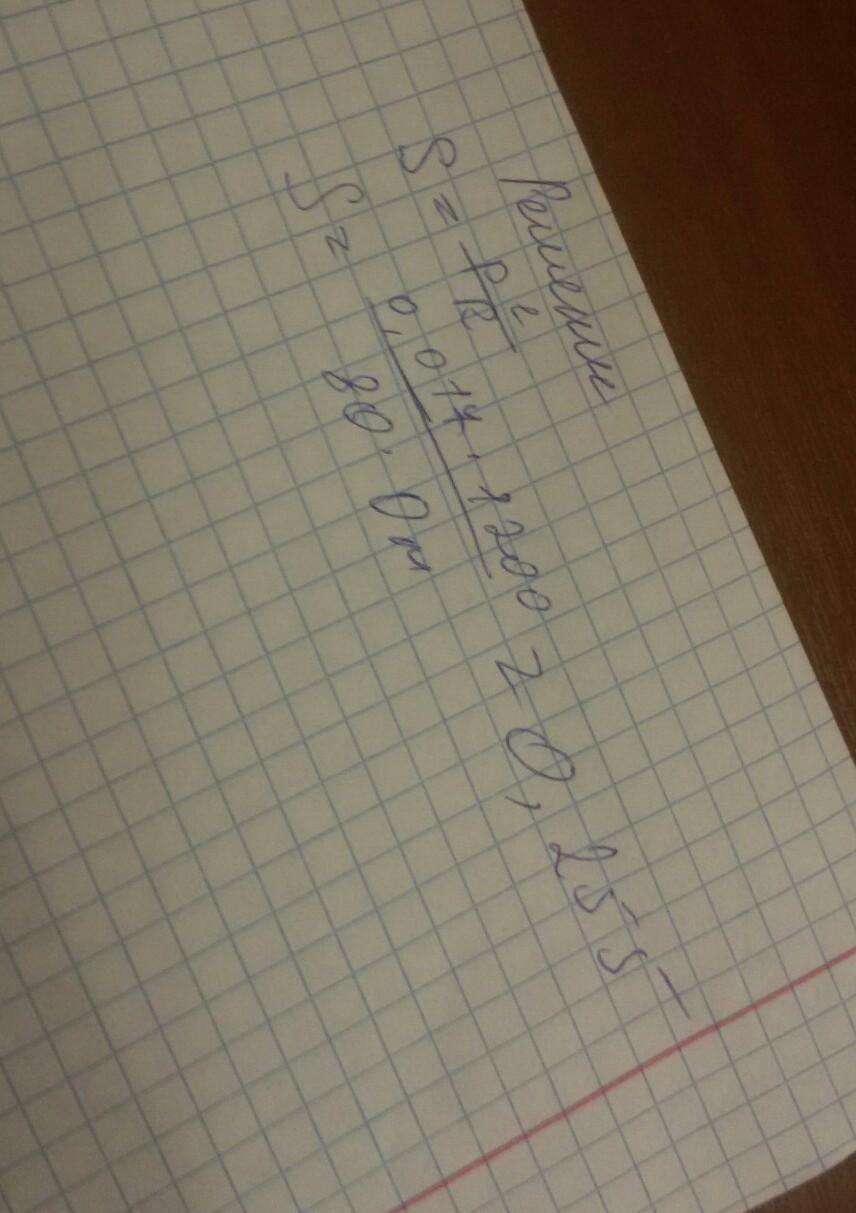 Решение
S = ρℓ/R
S = 0,017 · 1200 / 80 · Ом = 0,255